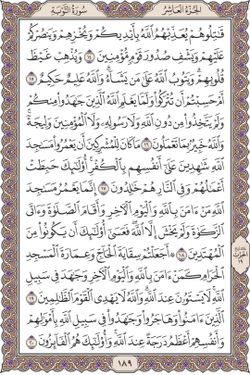 الجزء العاشر
سورة التوبة
قَٰتِلُوهُمْ يُعَذِّبْهُمُ ٱللَّهُ بِأَيْدِيكُمْ وَيُخْزِهِمْ وَيَنصُرْكُمْ
عَلَيْهِمْ وَيَشْفِ صُدُورَ قَوْمٍ مُّؤْمِنِينَ ١٤ وَيُذْهِبْ غَيْظَ
قُلُوبِهِمْ وَيَتُوبُ ٱللَّهُ عَلَىٰ مَن يَشَآءُ وَٱللَّهُ عَلِيمٌ حَكِيمٌ ١٥
أَمْ حَسِبْتُمْ أَن تُتْرَكُوا۟ وَلَمَّا يَعْلَمِ ٱللَّهُ ٱلَّذِينَ جَٰهَدُوا۟ مِنكُمْ
وَلَمْ يَتَّخِذُوا۟ مِن دُونِ ٱللَّهِ وَلَا رَسُولِهِۦ وَلَا ٱلْمُؤْمِنِينَ وَلِيجَةً
وَٱللَّهُ خَبِيرٌۢ بِمَا تَعْمَلُونَ ١٦ مَا كَانَ لِلْمُشْرِكِينَ أَن يَعْمُرُوا۟ مَسَٰجِدَ
ٱللَّهِ شَٰهِدِينَ عَلَىٰٓ أَنفُسِهِم بِٱلْكُفْرِ أُو۟لَٰٓئِكَ حَبِطَتْ
أَعْمَٰلُهُمْ وَفِى ٱلنَّارِ هُمْ خَٰلِدُونَ ١٧ إِنَّمَا يَعْمُرُ مَسَٰجِدَ
ٱللَّهِ مَنْ ءَامَنَ بِٱللَّهِ وَٱلْيَوْمِ ٱلْءَاخِرِ وَأَقَامَ ٱلصَّلَوٰةَ وَءَاتَى
ٱلزَّكَوٰةَ وَلَمْ يَخْشَ إِلَّا ٱللَّهَ فَعَسَىٰٓ أُو۟لَٰٓئِكَ أَن يَكُونُوا۟ مِنَ
ٱلْمُهْتَدِينَ ١٨ أَجَعَلْتُمْ سِقَايَةَ ٱلْحَآجِّ وَعِمَارَةَ ٱلْمَسْجِدِ
ٱلْحَرَامِ كَمَنْ ءَامَنَ بِٱللَّهِ وَٱلْيَوْمِ ٱلْءَاخِرِ وَجَٰهَدَ فِى سَبِيلِ
ٱللَّهِ لَا يَسْتَوُۥنَ عِندَ ٱللَّهِ وَٱللَّهُ لَا يَهْدِى ٱلْقَوْمَ ٱلظَّٰلِمِينَ ١٩
ٱلَّذِينَ ءَامَنُوا۟ وَهَاجَرُوا۟ وَجَٰهَدُوا۟ فِى سَبِيلِ ٱللَّهِ بِأَمْوَٰلِهِمْ
وَأَنفُسِهِمْ أَعْظَمُ دَرَجَةً عِندَ ٱللَّهِ وَأُو۟لَٰٓئِكَ هُمُ ٱلْفَآئِزُونَ ٢٠
١٨٩